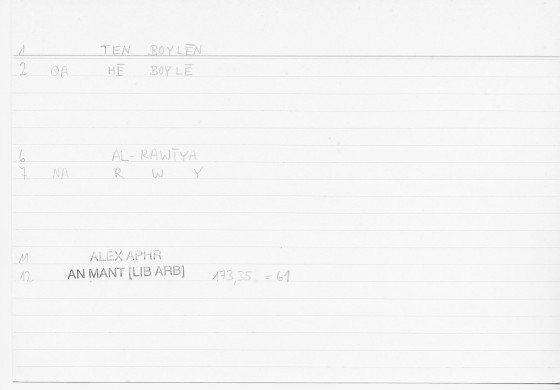 1 TEN BOYLĒN
2 QA HĒ BOYLĒ
6 AL-RAWĪYA
7 NA R W Y
11 ALEX APHR
12 AN MANT [LIB ARB] 173,35 = 61